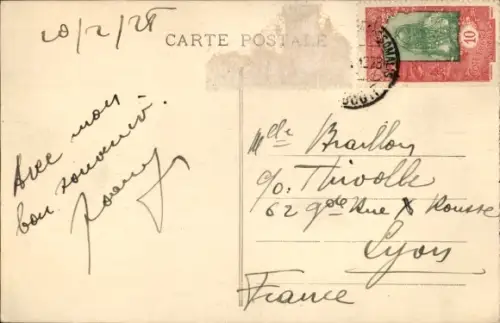 20/2/28
CARTE POSTALE
10
Avec mon
bon souvenir.
Mlle Braillon
c/o. Thivolle
62 Gde Rue X Rousse
Lyon
France